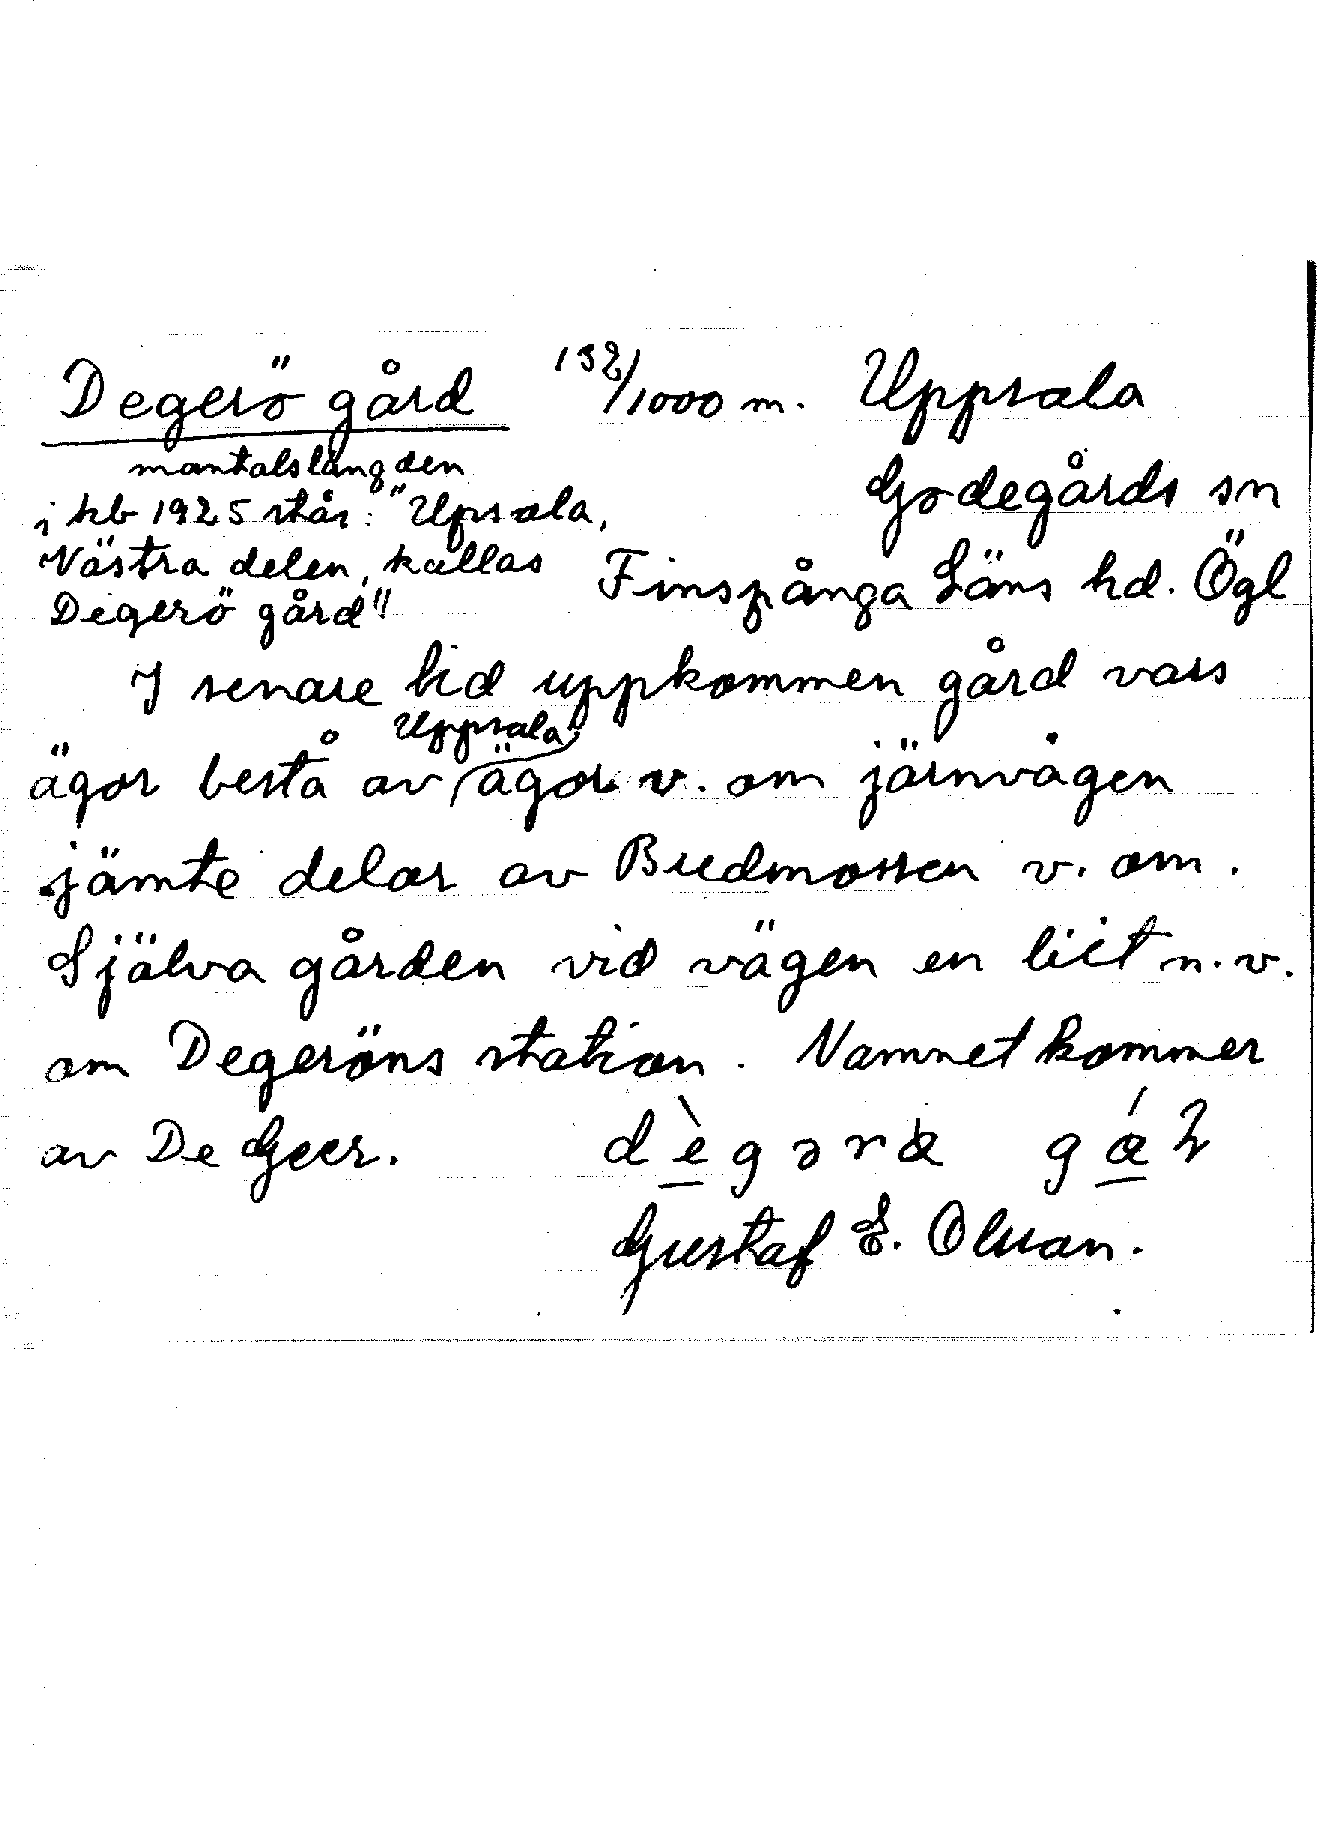 Degerö gård 132/1000 m. Uppsala
mantalslängden
i hb 1925 står: "Upsala,
Västra delen, kallas
Degerö gård"
Godegårds sn
Finspånga Läns hd. Ögl
I senare tid uppkommen gård vars
ägor bestå av Uppsala ägor v. om järnvägen
jämte delar av Bredmossen v. om.
Själva gården vid vägen en bit n.v.
om Degeröns station. Namnet kommer
av De Geer. dègəræ
Gustaf E. Olsson.